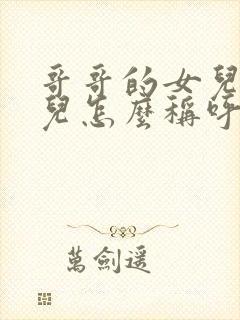 哥哥的女兒
兒怎麼稱呼
萬劍遥